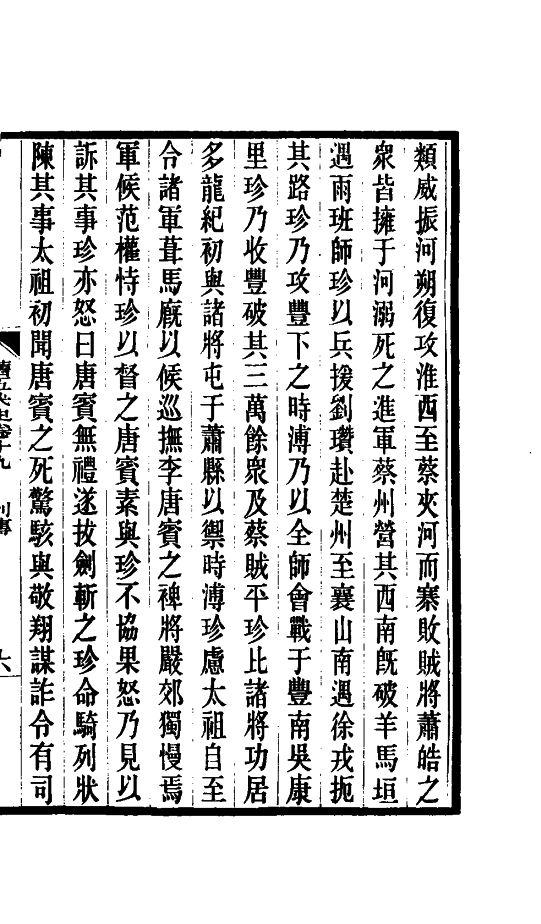 類威振河朔復攻淮西至蔡夾河而寨敗賊將蕭皓之
衆皆擁于河溺死之進軍蔡州營其西南旣破羊馬垣
遇雨班師珍以兵援劉瓚赴楚州至襄山南遇徐戎扼
其路珍乃攻豐下之時溥乃以全師會戰于豐南吳康
里珍乃收豐破其三萬餘衆及蔡賊平珍比諸將功居
多龍紀初與諸將屯于蕭縣以禦時溥珍慮太祖自至
令諸軍葺馬廐以候巡撫李唐賓之裨將嚴郊獨慢焉
軍候范權恃珍以督之唐賓素與珍不協果怒乃見以
訴其事珍亦怒曰唐賓無禮遂拔劍斬之珍命騎列狀
陳其事太祖初聞唐賓之死驚駭與敬翔謀詐令有司